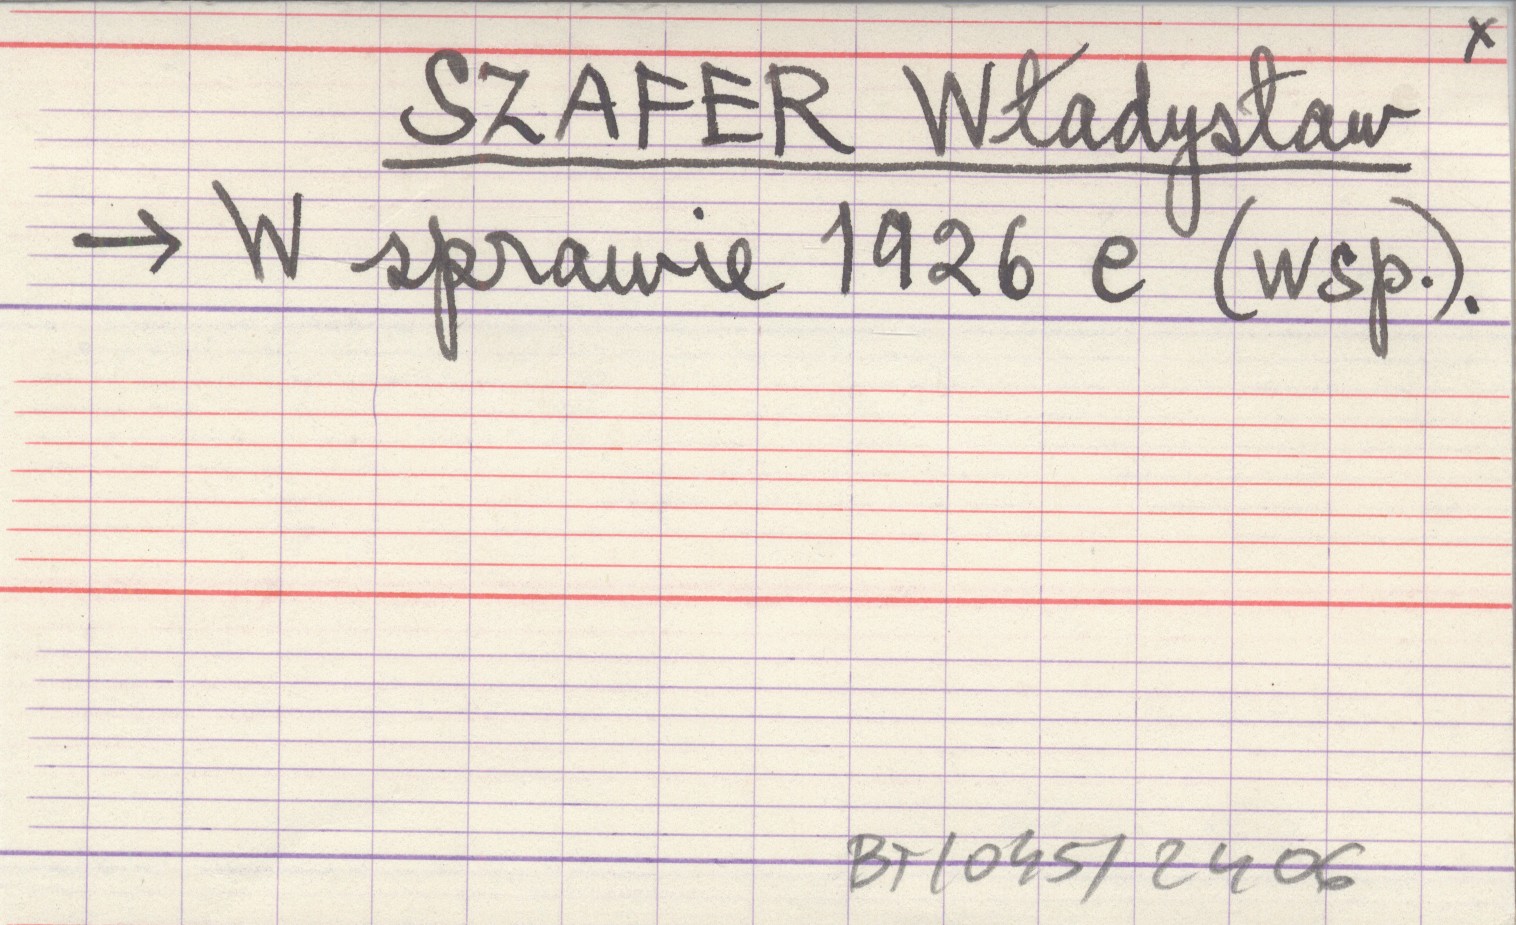 x
SZAFER Władysław
→ W sprawie 1926 e (wsp.).
BT/045/2406